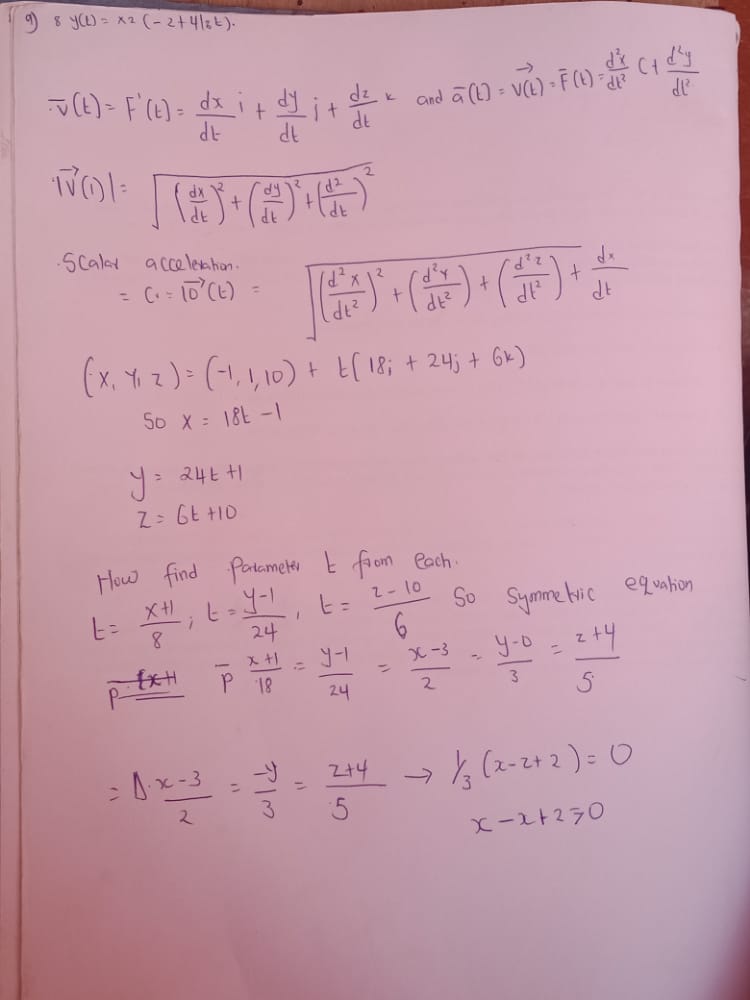 9) 8 y(t) = x2 (-2+4/2t).
v̅(t) = F'(t) = dx/dt i + dy/dt j + dz/dt k and a̅(t) = v⃗(t) = F̅(t) = d²x/dt² C + d²y/dt²
|v⃗(1)| = √((dx/dt)² + (dy/dt)² + (dz/dt)²
Scalar acceleration.
= C· = 10⃗(t) = √((d²x/dt²)² + (d²y/dt²) + (d²z/dt²) + dx/dt
(x, y, z) = (-1, 1, 10) + t(18i + 24j + 6k)
So x = 18t - 1
y = 24t + 1
z = 6t + 10
How find Parameter t from each.
t = x+1/8 ; t = y-1/24 , t = z-10/6 So Symmetric equation
p̅ x+1/18 = y-1/24 = x-3/2 = y-0/3 = z+4/5
= Δ· x-3/2 = -y/3 = z+4/5 → 1/3 (x-z+2) = 0
x - x + 2 = 0